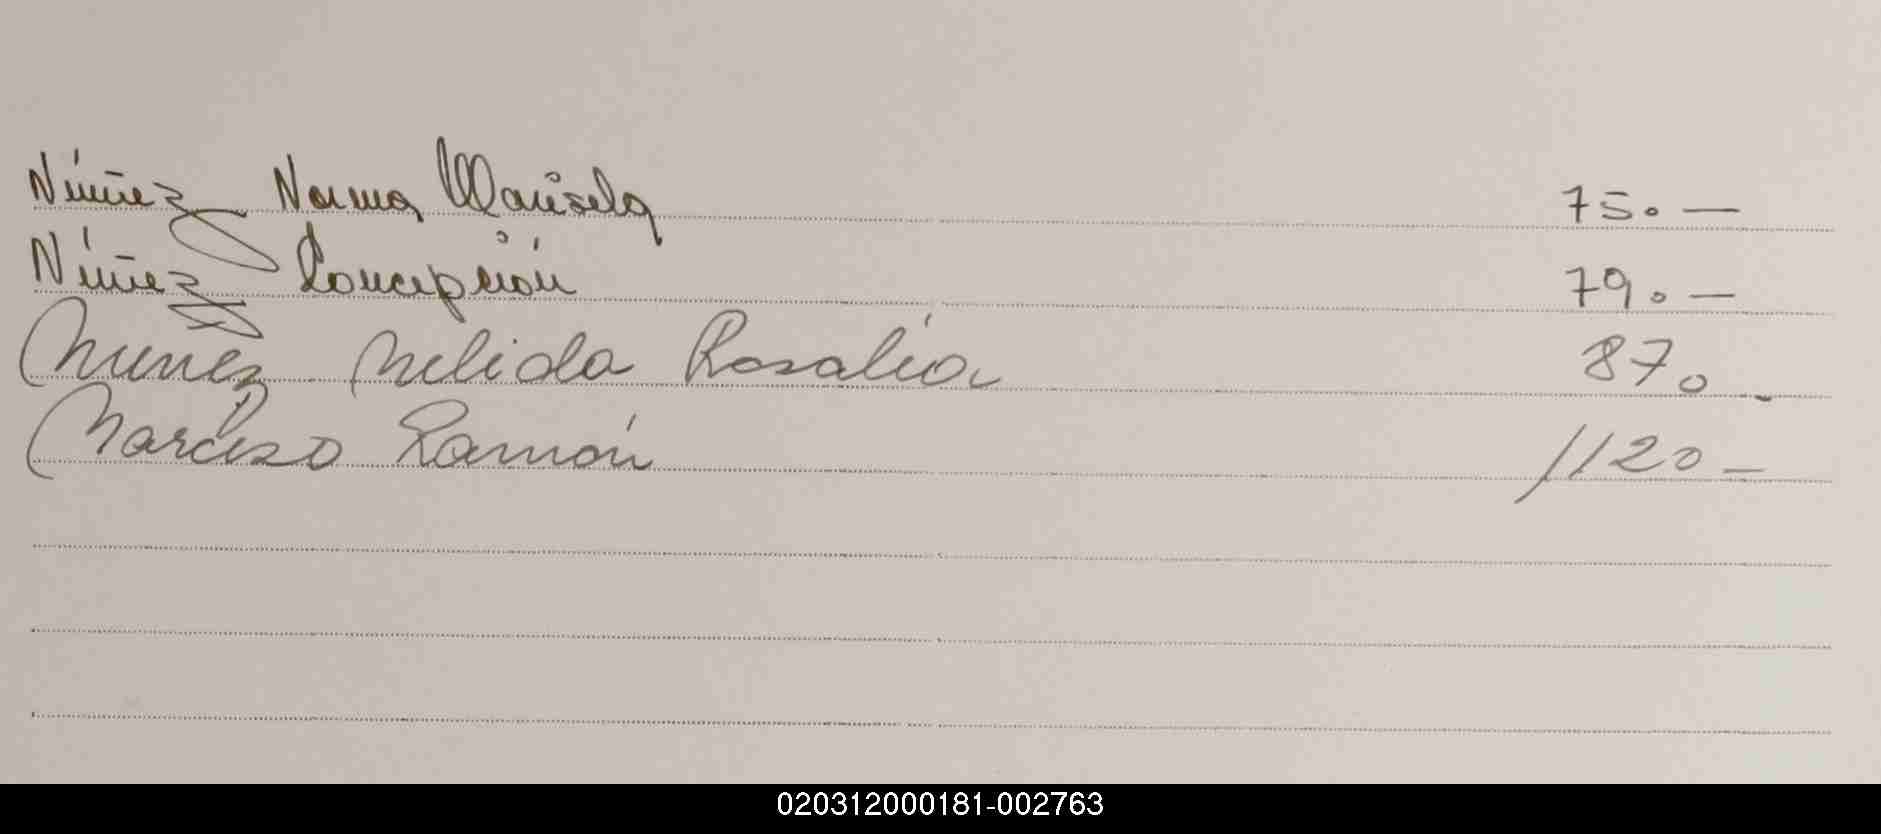 Núñez Norma Marisela 750.—
Núñez Concepción 790.—
Nuñez Nelida Rosalía 870.-
Narciso Ramón 1120-
020312000181-002763